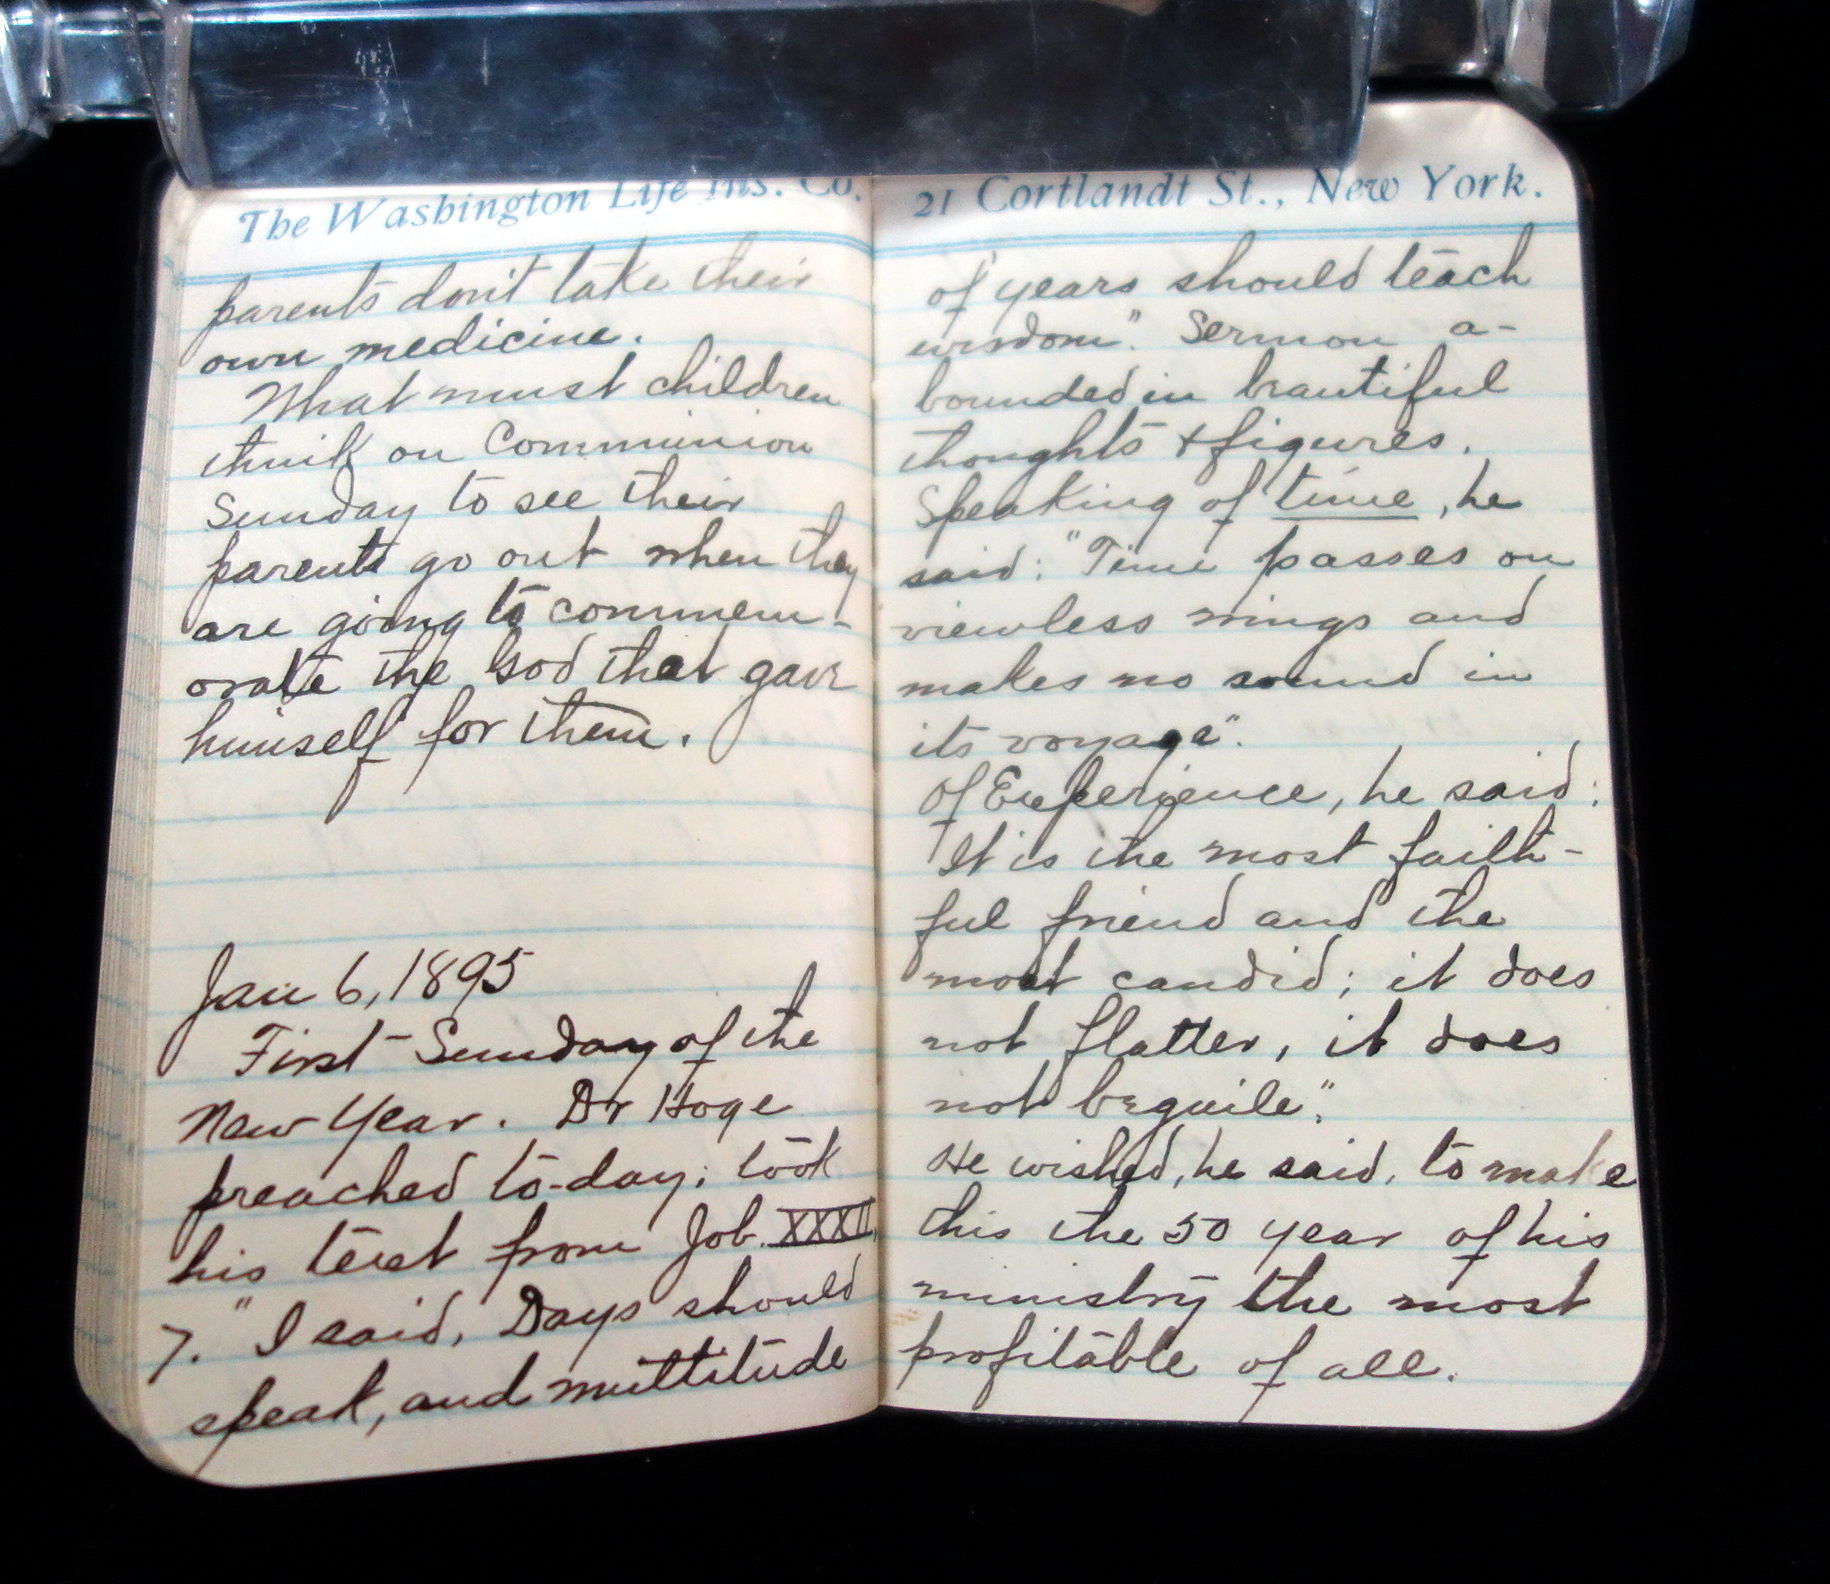 The Washington Life Ins. Co.
parents don't take their
own medicine.
What must children
think on Communion
Sunday to see their
parents go out when they
are going to commem-
orate the God that gave
himself for them.
Jan 6, 1895
First Sunday of the
New Year. Dr Hoge
preached to-day; took
his text from Job XXXII,
7. "I said, Days should
speak, and multitude
21 Cortlandt St., New York.
of years should teach
wisdom". Sermon a-
bounded in beautiful
thoughts & figures.
Speaking of time, he
said: "Time passes on
viewless wings and
makes no sound in
its voyage".
Of Experience, he said:
"It is the most faith-
ful friend and the
most candid; it does
not flatter, it does
not beguile".
He wished, he said, to make
this the 50 year of his
ministry the most
profitable of all.